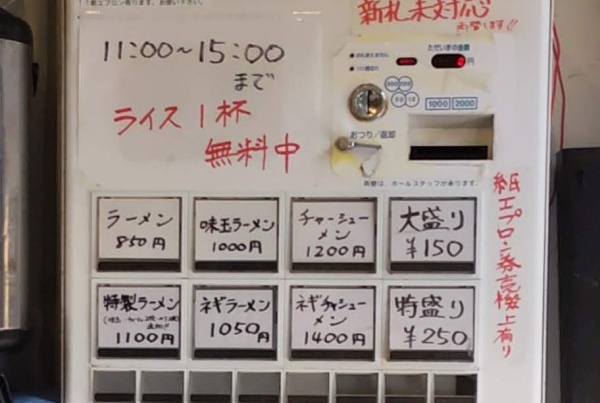 新札未対応
両替します!!
11:00~15:00
まで
ライス1杯
無料中
ただいまの金額
円
1000 2000
おつり/返却
両替は、ホールスタッフが承ります。
ラーメン
850円
味玉ラーメン
1000円
チャーシュー
メン
1200円
大盛り
¥150
特製ラーメン
1100円
ネギラーメン
1050円
ネギチャシュー
メン
1400円
特盛り
¥250
紙エプロン券売機上有り